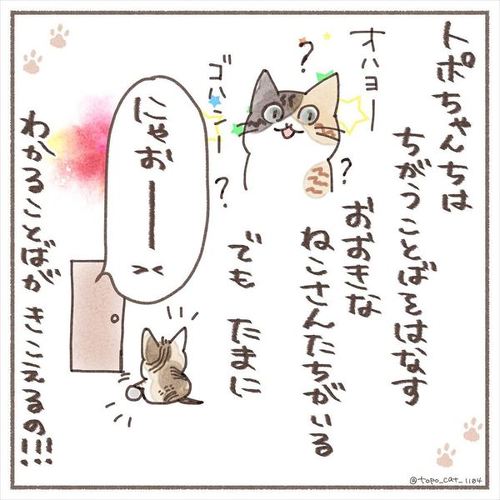 トポちゃんちは
ちがうことばをはなす
おおきな
ねこさんたちがいる
オハヨー
?
ゴハンー
?
?
でも たまに
にゃおーー ><
わかることばが きこえるの!!!
@topo_cat_1104